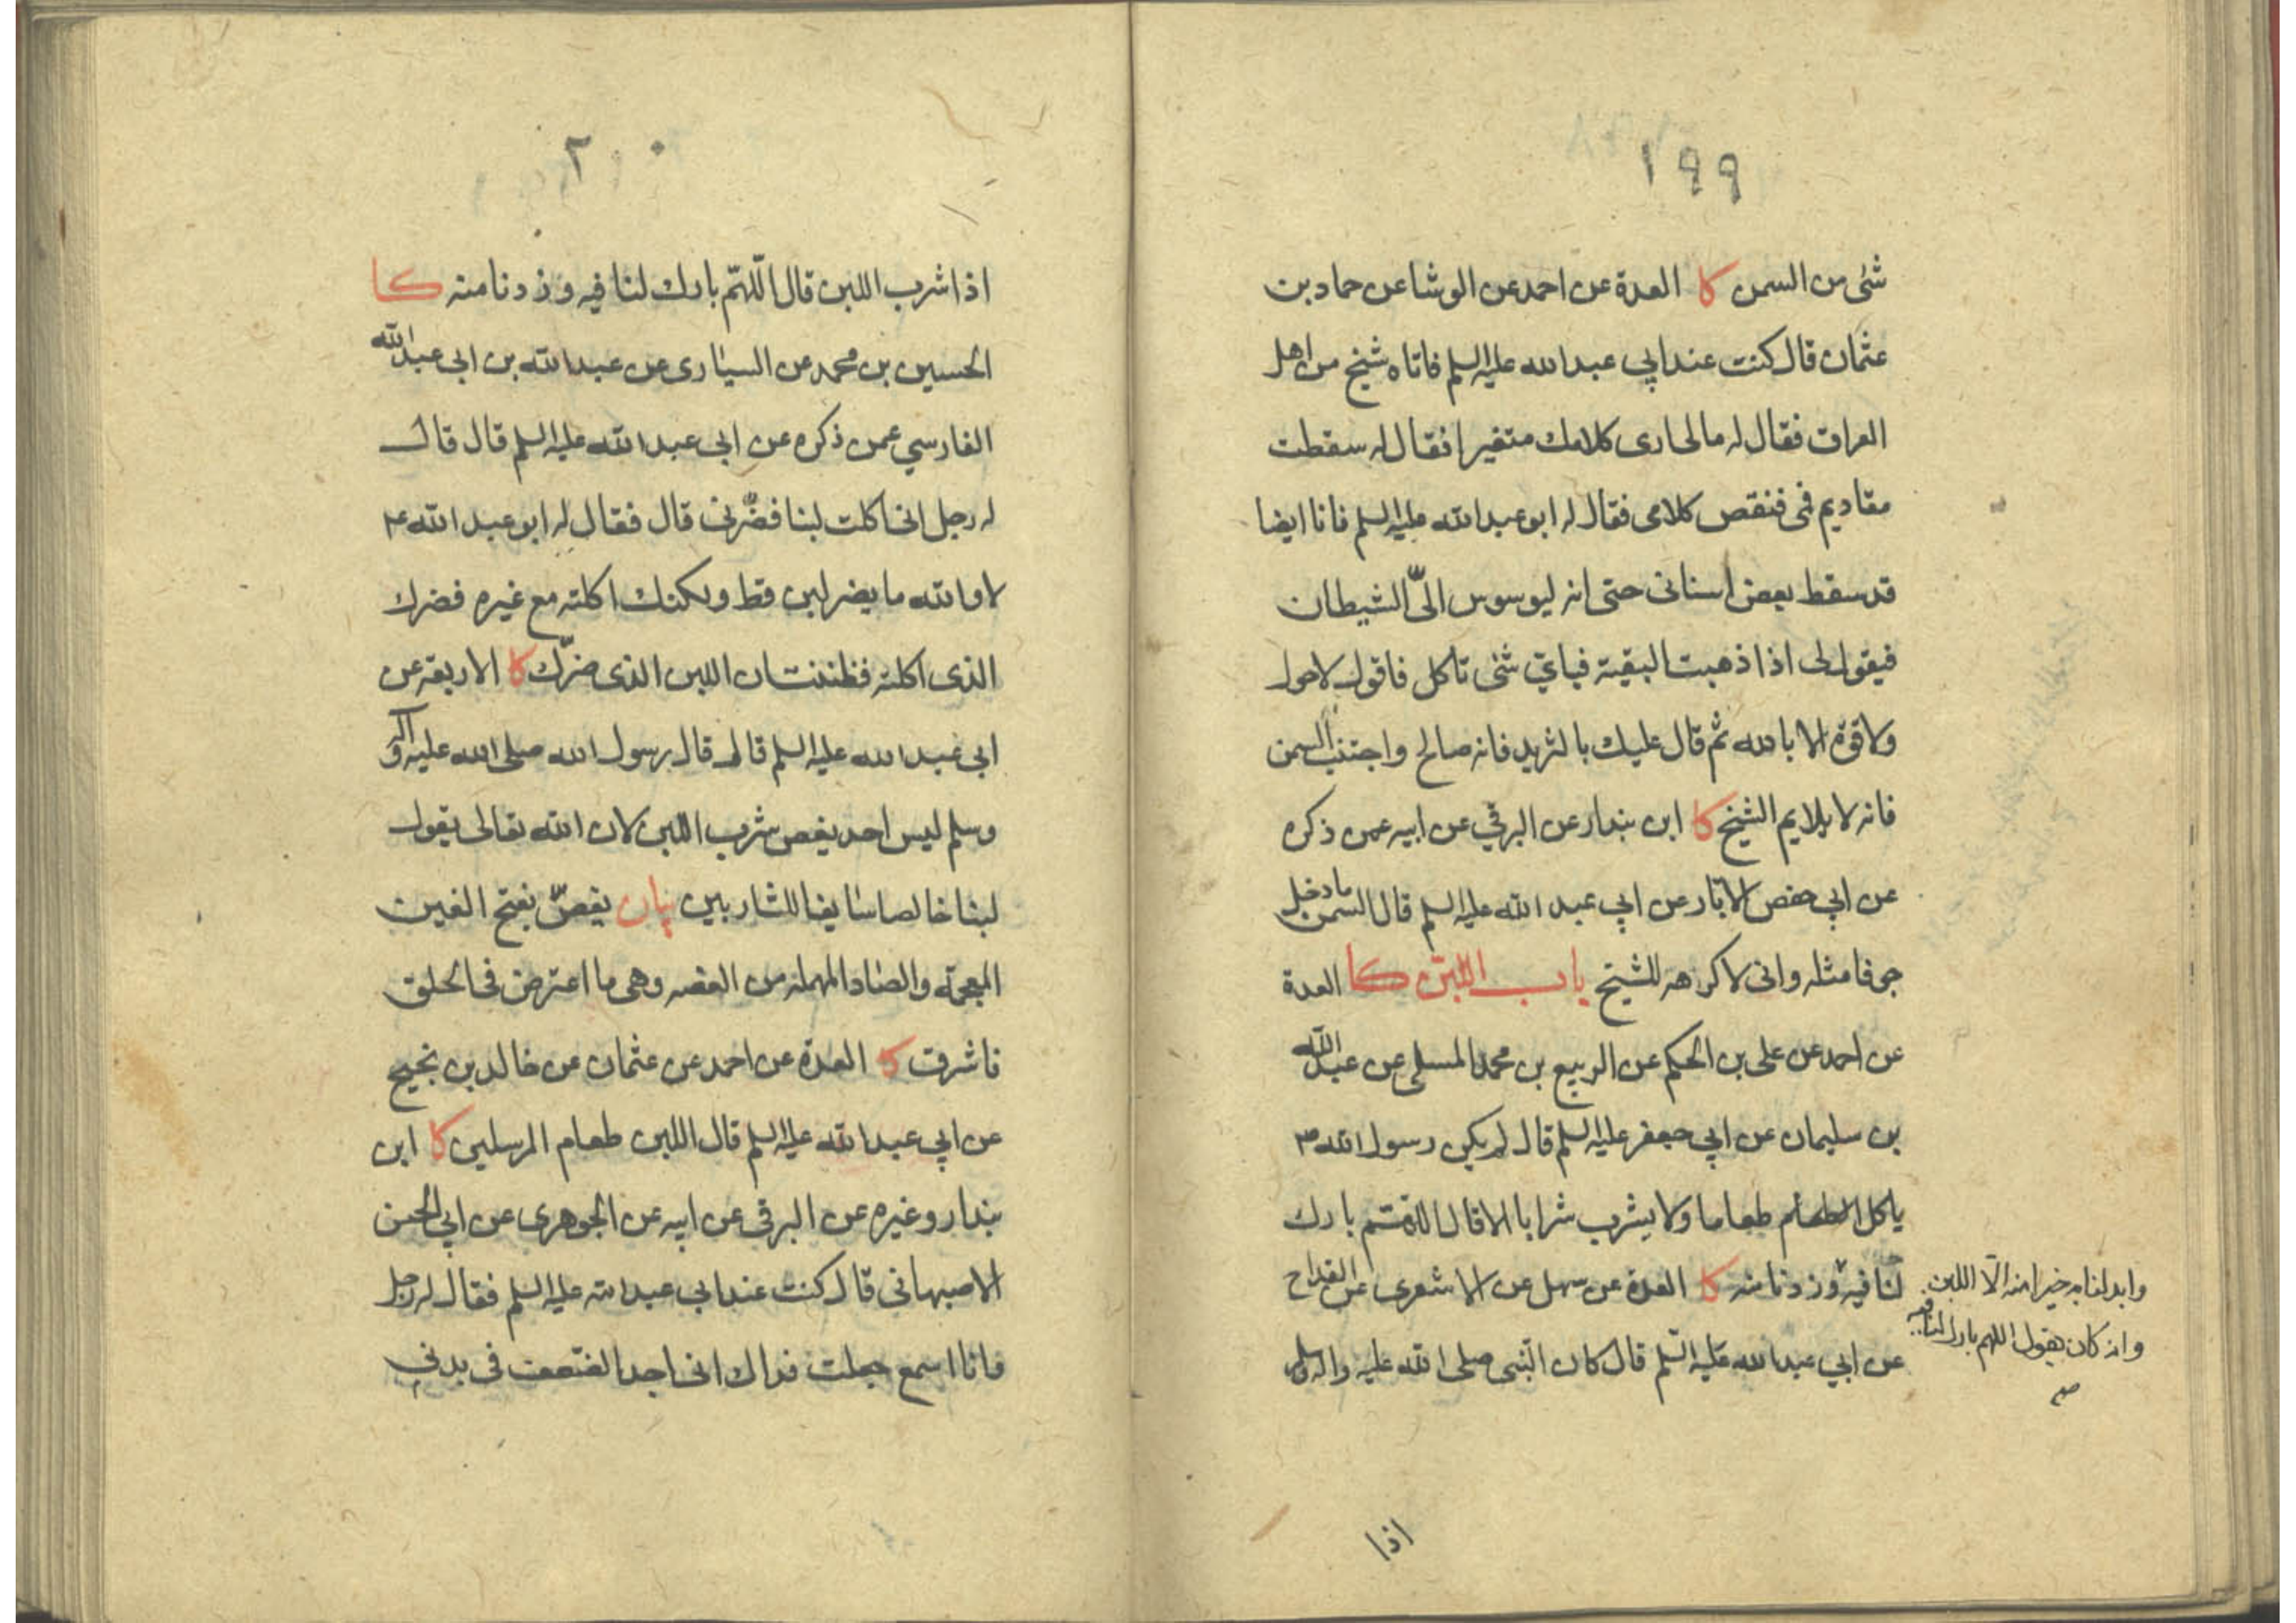 ١٩٩
شئ من السمن كا العدة عن احمد عن الوشا عن حماد بن
عثمان قال كنت عند ابي عبد الله عليه السلم فاتاه شيخ من اهل
العراق فقال له مالى ارى كلامك متغيرا فقال له سقطت
مقاديم فى فنقص كلامى فقال له ابو عبد الله عليه السلم فانا ايضا
قد سقط بعض اسنانى حتى انه ليوسوس الىّ الشيطان
فيقول لى اذا ذهبت البقية فباىّ شئ تاكل فاقول لا حول
ولا قوة الا بالله ثم قال عليك بالثريد فانه صالح واجتنب السمن
فانه لا يلايم الشيخ كا ابن بندار عن البرقي عن ابيه عمن ذكره
عن ابي حفص الابار عن ابي عبد الله عليه السلم قال السمن ما دخل
جوفا مثله وانى لاكرهه للشيخ باب اللبن كا العدة
عن احمد عن على بن الحكم عن الربيع بن محمد المسلى عن عبد الله
بن سليمان عن ابي جعفر عليه السلم قال لم يكن رسول الله ص
ياكل الطعام طعاما ولا يشرب شرابا الا قال اللهم بارك
لنا فيه وزدنا منه كا العدة عن سهل عن الاشعرى عن القداح
عن ابي عبد الله عليه السلم قال كان النبى صلى الله عليه واله وسلم
وابدلنا به خيرا منه الّا اللبن
وانه كان يقول اللهم بارك لنا فيه
صح
اذا
٢٠٠
اذا شرب اللبن قال اللّهمّ بارك لنا فيه وزدنا منه كا
الحسين بن محمد عن السيارى عن عبد الله بن ابى عبد الله
الفارسي عمن ذكره عن ابى عبد الله عليه السلم قال قال
له رجل انى اكلت لبنا فضرّنى قال فقال له ابو عبد الله ع
لا والله ما يضر لبن قط ولكنك اكلته مع غيره فضرك
الذى اكلته فظننت ان اللبن الذى ضرّك كا الاربعة عن
ابى عبد الله عليه السلم قال قال رسول الله صلى الله عليه واله
وسلم ليس احد يغص بشرب اللبن لان الله تعالى يقول
لبنا خالصا سايغا للشاربين بيان يغصّ بفتح الغين
المعجمة والصاد المهملة من الغصه وهى ما اعترض فى الحلق
فاشرق كا العدة عن احمد عن عثمان عن خالد بن نجيح
عن ابي عبد الله عليه السلم قال اللبن طعام المرسلين كا ابن
بندار وغيره عن البرقى عن ابيه عن الجوهرى عن ابى الحسن
الاصبهانى قال كنت عند ابى عبد الله عليه السلم فقال له رجل
وانا اسمع جعلت فداك انى اجد الضعف فى بدنى